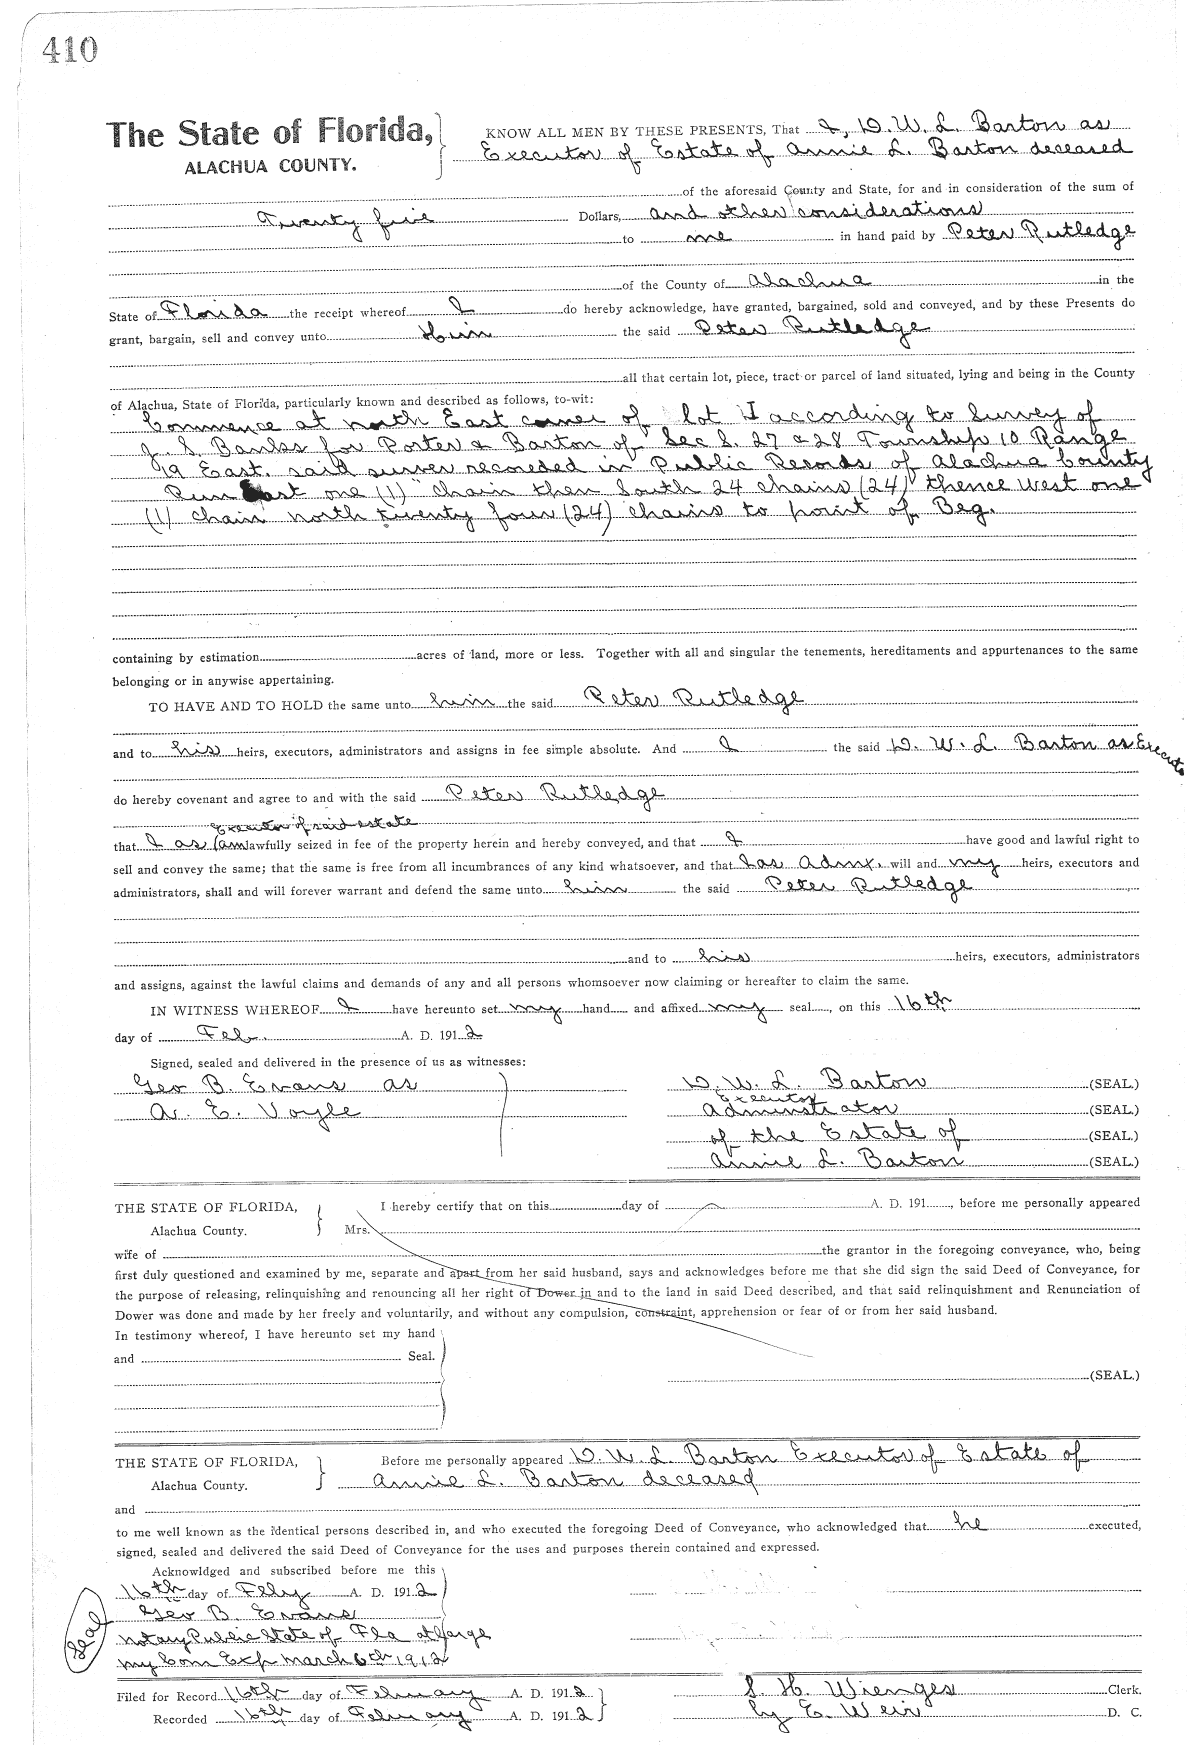 410
The State of Florida,
ALACHUA COUNTY.
KNOW ALL MEN BY THESE PRESENTS, That I, D. W. L. Barton as
Executor of Estate of Annie L. Barton deceased
of the aforesaid County and State, for and in consideration of the sum of
Twenty five Dollars, and other considerations
to me in hand paid by Peter Rutledge
of the County of Alachua in the
State of Florida the receipt whereof I do hereby acknowledge, have granted, bargained, sold and conveyed, and by these Presents do
grant, bargain, sell and convey unto Him the said Peter Rutledge
all that certain lot, piece, tract or parcel of land situated, lying and being in the County
of Alachua, State of Florida, particularly known and described as follows, to-wit:
Commence at north East corner of lot I according to Survey of
J. S. Banks for Porter & Barton of Sec S. 27 & 28 Township 10 Range
19 East. said survey recorded in Public Records of Alachua County
Run East one (1) chain then South 24 chains (24) thence West one
(1) chain north twenty four (24) chains to point of Beg.
containing by estimation acres of land, more or less. Together with all and singular the tenements, hereditaments and appurtenances to the same
belonging or in anywise appertaining.
TO HAVE AND TO HOLD the same unto him the said Peter Rutledge
and to his heirs, executors, administrators and assigns in fee simple absolute. And I the said D. W. L. Barton as Executo
do hereby covenant and agree to and with the said Peter Rutledge
Executor of said estate
that I as (am lawfully seized in fee of the property herein and hereby conveyed, and that I have good and lawful right to
sell and convey the same; that the same is free from all incumbrances of any kind whatsoever, and that I as Admx. will and my heirs, executors and
administrators, shall and will forever warrant and defend the same unto him the said Peter Rutledge
and to his heirs, executors, administrators
and assigns, against the lawful claims and demands of any and all persons whomsoever now claiming or hereafter to claim the same.
IN WITNESS WHEREOF I have hereunto set my hand and affixed my seal, on this 16th
day of Feb. A. D. 1912
Signed, sealed and delivered in the presence of us as witnesses:
Geo B. Evans as
A. E. Voyle
D. W. L. Barton (SEAL.)
Executor
Administrator (SEAL.)
of the Estate of (SEAL.)
Annie L. Barton (SEAL.)
THE STATE OF FLORIDA,
Alachua County.
I hereby certify that on this day of A. D. 191, before me personally appeared
Mrs.
wife of the grantor in the foregoing conveyance, who, being
first duly questioned and examined by me, separate and apart from her said husband, says and acknowledges before me that she did sign the said Deed of Conveyance, for
the purpose of releasing, relinquishing and renouncing all her right of Dower in and to the land in said Deed described, and that said relinquishment and Renunciation of
Dower was done and made by her freely and voluntarily, and without any compulsion, constraint, apprehension or fear of or from her said husband.
In testimony whereof, I have hereunto set my hand
and Seal.
(SEAL.)
THE STATE OF FLORIDA,
Alachua County.
Before me personally appeared D. W. L. Barton Executor of Estate of
Annie L. Barton deceased
and
to me well known as the identical persons described in, and who executed the foregoing Deed of Conveyance, who acknowledged that he executed,
signed, sealed and delivered the said Deed of Conveyance for the uses and purposes therein contained and expressed.
Acknowldged and subscribed before me this
16th day of Feby A. D. 1912
Geo B. Evans
Notary Public State of Fla at large
my Com Exp March 6th 1912
Seal
Filed for Record 16th day of February A. D. 1912
Recorded 16th day of February A. D. 1912
S. H. Wienges Clerk.
by E. Weir D. C.